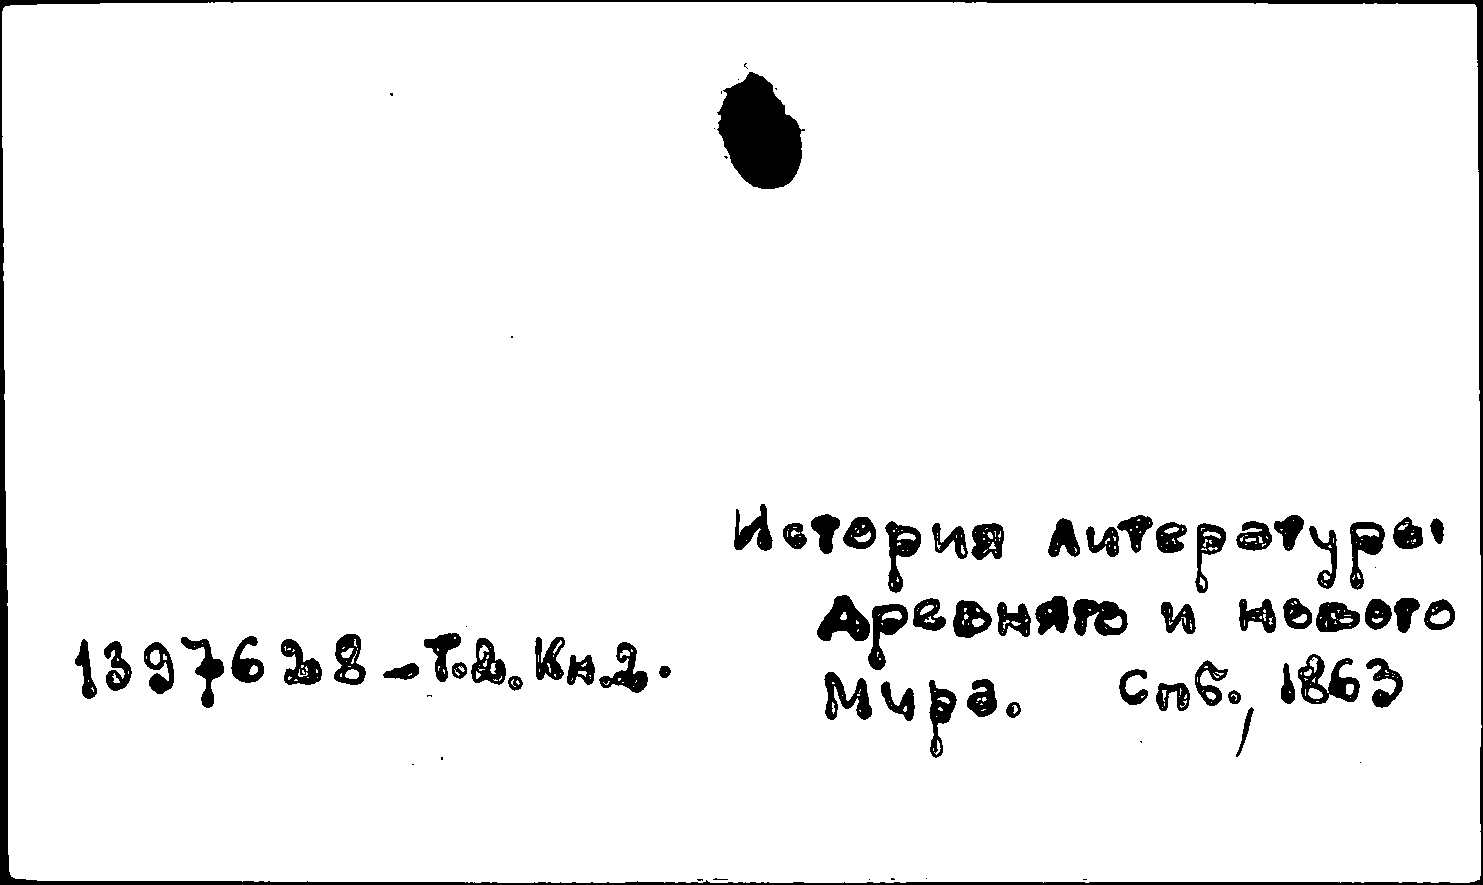 История литературы
Древняго и нового
1397628-Т.2. Кн.2.
Мира. Спб., 1863